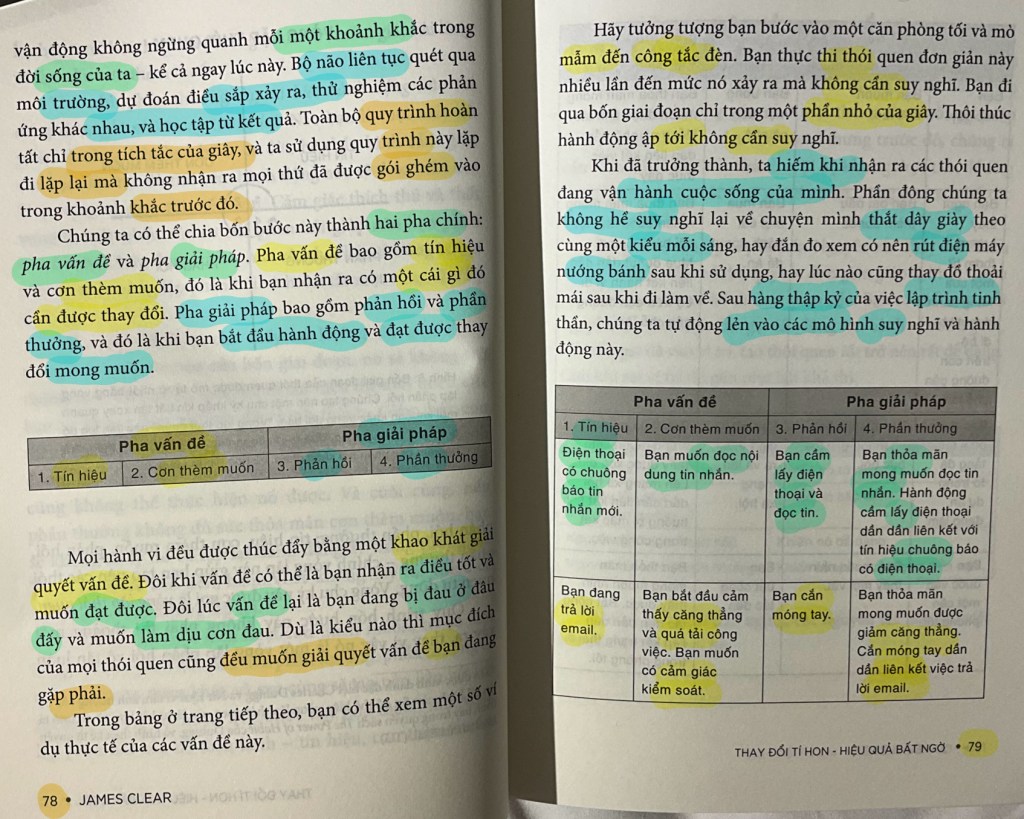 vận động không ngừng quanh mỗi một khoảnh khắc trong
đời sống của ta – kể cả ngay lúc này. Bộ não liên tục quét qua
môi trường, dự đoán điều sắp xảy ra, thử nghiệm các phản
ứng khác nhau, và học tập từ kết quả. Toàn bộ quy trình hoàn
tất chỉ trong tích tắc của giây, và ta sử dụng quy trình này lặp
đi lặp lại mà không nhận ra mọi thứ đã được gói ghém vào
trong khoảnh khắc trước đó.
Chúng ta có thể chia bốn bước này thành hai pha chính:
pha vấn đề và pha giải pháp. Pha vấn đề bao gồm tín hiệu
và cơn thèm muốn, đó là khi bạn nhận ra có một cái gì đó
cần được thay đổi. Pha giải pháp bao gồm phản hồi và phần
thưởng, và đó là khi bạn bắt đầu hành động và đạt được thay
đổi mong muốn.
Pha vấn đề Pha giải pháp
1. Tín hiệu 2. Cơn thèm muốn 3. Phản hồi 4. Phần thưởng
Mọi hành vi đều được thúc đẩy bằng một khao khát giải
quyết vấn đề. Đôi khi vấn đề có thể là bạn nhận ra điều tốt và
muốn đạt được. Đôi lúc vấn đề lại là bạn đang bị đau ở đâu
đấy và muốn làm dịu cơn đau. Dù là kiểu nào thì mục đích
của mọi thói quen cũng đều muốn giải quyết vấn đề bạn đang
gặp phải.
Trong bảng ở trang tiếp theo, bạn có thể xem một số ví
dụ thực tế của các vấn đề này.
78 • JAMES CLEAR
Hãy tưởng tượng bạn bước vào một căn phòng tối và mò
mẫm đến công tắc đèn. Bạn thực thi thói quen đơn giản này
nhiều lần đến mức nó xảy ra mà không cần suy nghĩ. Bạn đi
qua bốn giai đoạn chỉ trong một phần nhỏ của giây. Thôi thúc
hành động ập tới không cần suy nghĩ.
Khi đã trưởng thành, ta hiếm khi nhận ra các thói quen
đang vận hành cuộc sống của mình. Phần đông chúng ta
không hề suy nghĩ lại về chuyện mình thắt dây giày theo
cùng một kiểu mỗi sáng, hay đắn đo xem có nên rút điện máy
nướng bánh sau khi sử dụng, hay lúc nào cũng thay đồ thoải
mái sau khi đi làm về. Sau hàng thập kỷ của việc lập trình tinh
thần, chúng ta tự động lẻn vào các mô hình suy nghĩ và hành
động này.
Pha vấn đề Pha giải pháp
1. Tín hiệu 2. Cơn thèm muốn 3. Phản hồi 4. Phần thưởng
Điện thoại
có chuông
báo tin
nhắn mới.
Bạn muốn đọc nội
dung tin nhắn.
Bạn cầm
lấy điện
thoại và
đọc tin.
Bạn thỏa mãn
mong muốn đọc tin
nhắn. Hành động
cầm lấy điện thoại
dần dần liên kết với
tín hiệu chuông báo
có điện thoại.
Bạn đang
trả lời
email.
Bạn bắt đầu cảm
thấy căng thẳng
và quá tải công
việc. Bạn muốn
có cảm giác
kiểm soát.
Bạn cắn
móng tay.
Bạn thỏa mãn
mong muốn được
giảm căng thẳng.
Cắn móng tay dần
dần liên kết việc trả
lời email.
THAY ĐỔI TÍ HON - HIỆU QUẢ BẤT NGỜ • 79